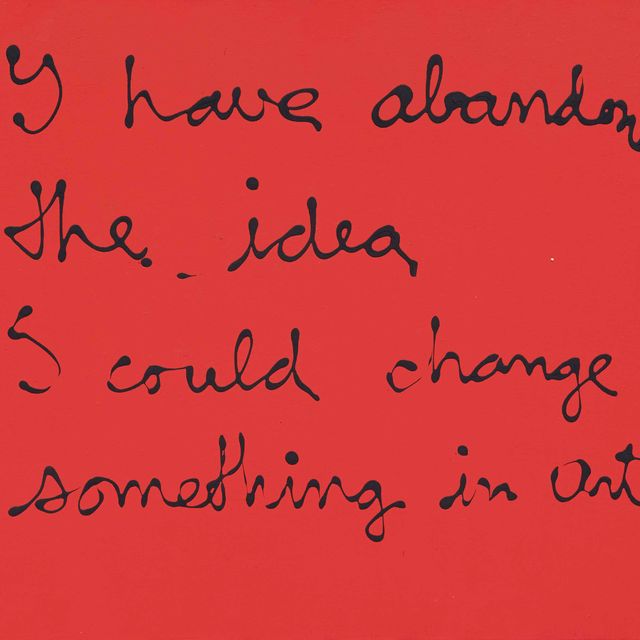 I have abandon
the idea
I could change
something in Art